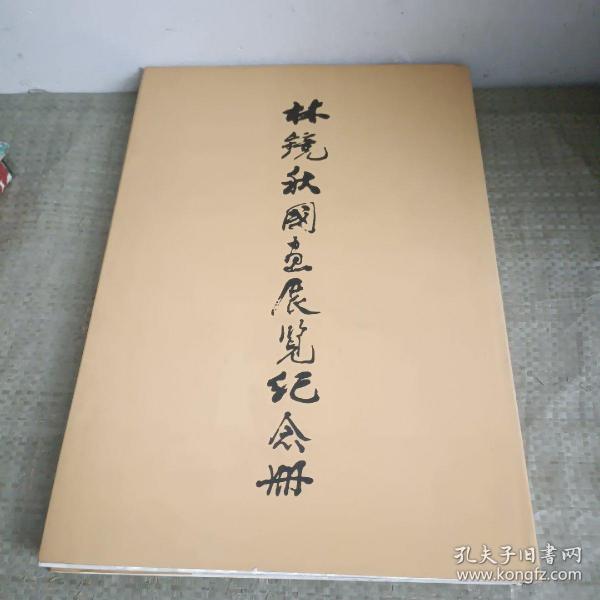 林镜秋國画展覧纪念册
孔夫子旧書网
www.kongfz.com